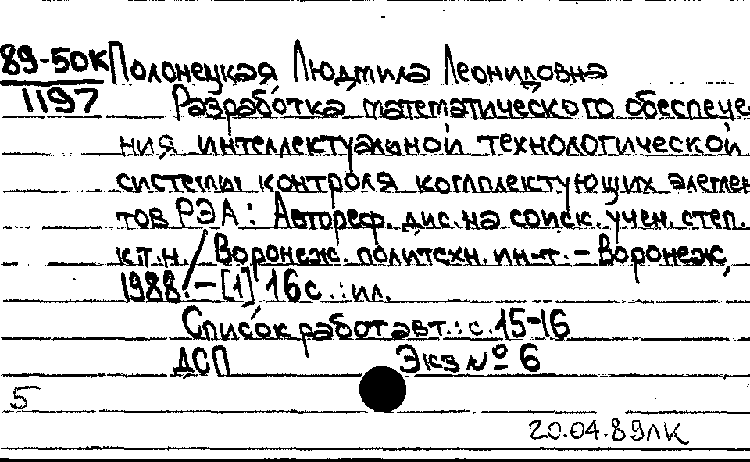 89-50к Полонецкая Людмила Леонидовна
1197 Разработка математического обеспече
ния интеллектуальной технологической
системы контроля комплектующих элемен
тов РЭА: Автореф. дис. на соиск. учен. степ.
к.т.н. / Воронеж. политехн. ин-т. - Воронеж,
1988. - [1] 16 с.: ил.
Список работ авт.: с. 15-16
ДСП Экз № 6
5
20.04.89лк